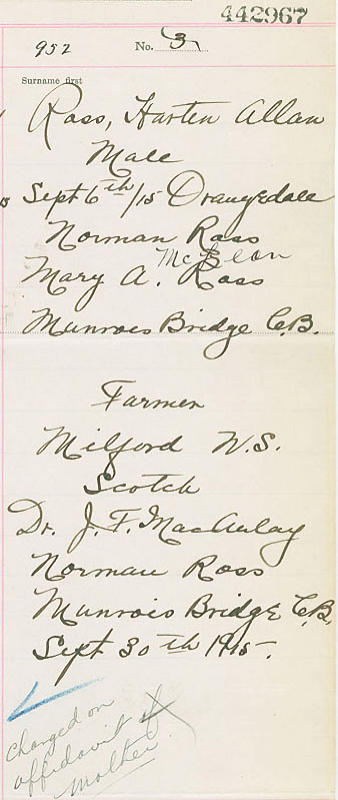 442967
952 No. 3
Surname first
Ross, Harten Allan
Male
Sept 6th/15 Orangedale
Norman Ross
McLean
Mary A. Ross
Munroes Bridge C.B.
Farmer
Milford N.S.
Scotch
Dr. J. F. MacAulay
Norman Ross
Munrois Bridge C.B.
Sept 30th 1915.
changed on
affidavit of
mother